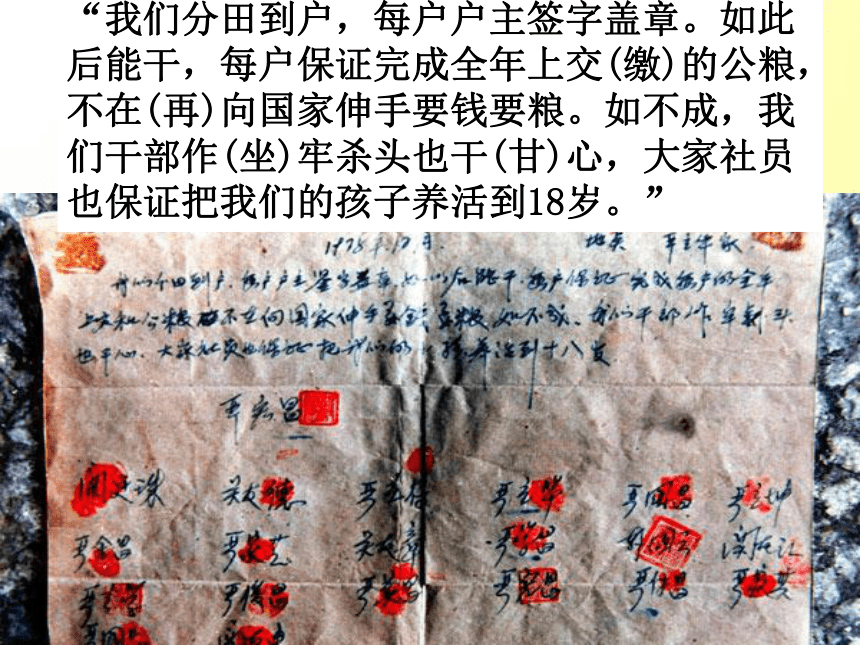 “我们分田到户，每户户主签字盖章。如此
后能干，每户保证完成全年上交(缴)的公粮，
不在(再)向国家伸手要钱要粮。如不成，我
们干部作(坐)牢杀头也干(甘)心，大家社员
也保证把我们的孩子养活到18岁。”
1978年12月. 地点 严立华家.
我们分田到户.每户户主签字盖章.如以后能干.每户保证完成每户的全年
上交和公粮不在向国家伸手要钱要粮.如不成.我们干部作牢剎头
也干心.大家社员也保证把我们的小孩养活到十八岁.
严宏昌
关友德 严立华 严国昌 严立坤
严金昌 关友章 严学昌